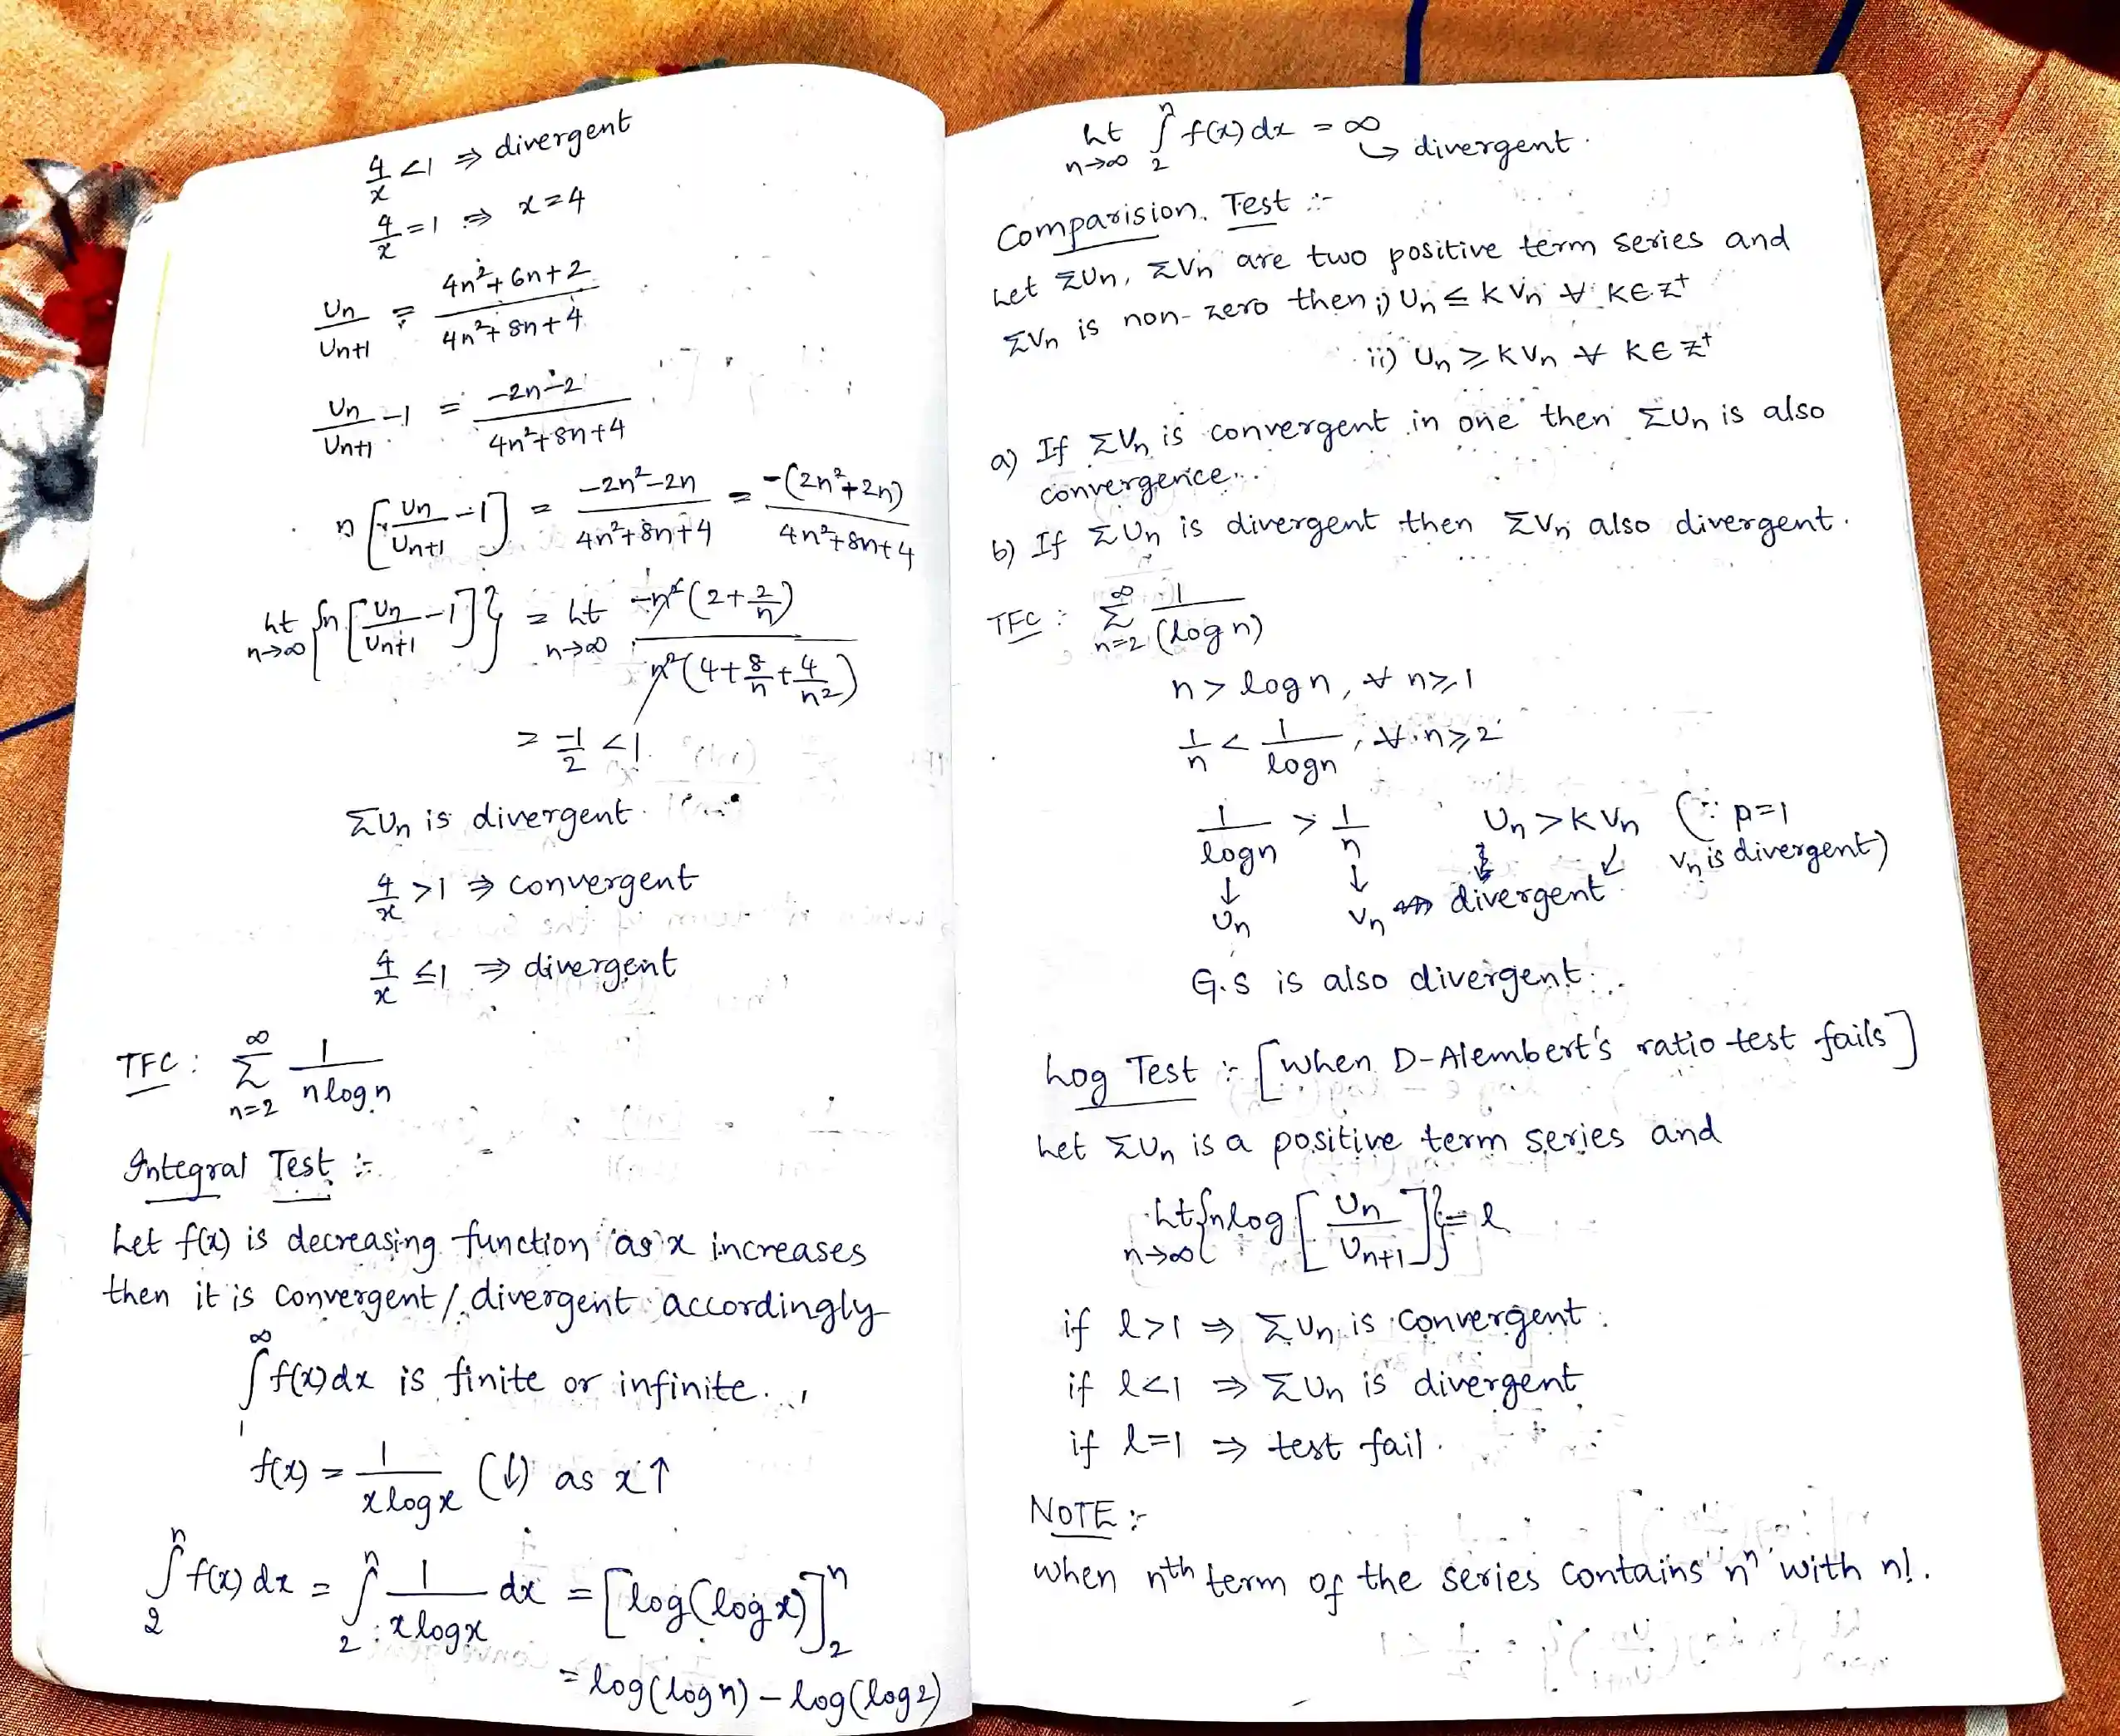 4/x <1 ⇒ divergent
4/x =1 ⇒ x=4
Un/Un+1 = 4n²+6n+2 / 4n²+8n+4
Un/Un+1 -1 = -2n-2 / 4n²+8n+4
n[Un/Un+1 -1] = -2n²-2n / 4n²+8n+4 = -(2n²+2n) / 4n²+8n+4
Lt n→∞ {n[Un/Un+1 -1]} = Lt n→∞ -n²(2+2/n) / n²(4+8/n+4/n²)
= -1/2 <1.
ΣUn is divergent.
4/x >1 ⇒ convergent
4/x ≤1 ⇒ divergent
TFC : ∞ Σ n=2 1/nlogn
Integral Test :-
Let f(x) is decreasing function as x increases
then it is convergent/divergent accordingly
∞ ∫ 1 f(x)dx is finite or infinite.
f(x) = 1/xlogx (↓) as x↑
n ∫ 2 f(x)dx = n ∫ 2 1/xlogx dx = [log(logx)]n 2
= log(logn) - log(log2)
Lt n→∞ n ∫ 2 f(x)dx = ∞ ↪ divergent.
Comparision Test :-
Let ΣUn, ΣVn are two positive term series and
ΣVn is non-zero then i) Un ≤ k Vn ∀ K∈Z⁺
ii) Un ≥ kVn ∀ K∈Z⁺
a) If ΣVn is convergent in one then ΣUn is also
convergence.
b) If ΣUn is divergent then ΣVn also divergent.
TFC : ∞ Σ n=2 1/(logn)
n > logn, ∀ n≥1
1/n < 1/logn, ∀ n≥2
1/logn > 1/n Un >k Vn (∵ p=1
↓ ↓ ↓ ↙ Vn is divergent)
Un Vn divergent
G.S is also divergent.
Log Test :- [when D-Alembert's ratio test fails]
Let ΣUn is a positive term series and
Lt n→∞ {nlog[Un/Un+1]} = l
if l>1 ⇒ ΣUn is convergent.
if l<1 ⇒ ΣUn is divergent
if l=1 ⇒ test fail.
NOTE :-
when nth term of the series contains "nⁿ" with n!.